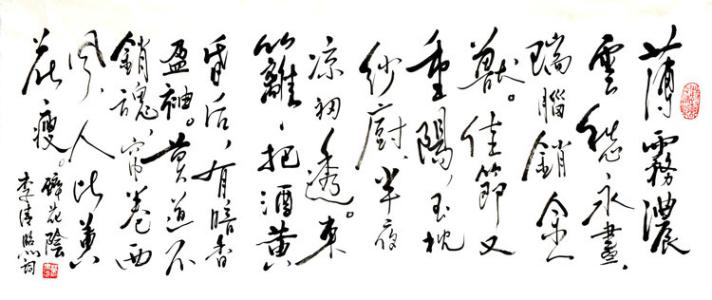 薄霧濃
雲愁永晝，
瑞腦銷金
獸。佳節又
重陽，玉枕
紗廚，半夜
凉初透。東
籬把酒黄
昏后，有暗香
盈袖。莫道不
銷魂，帘卷西
風，人比黄
花瘦。醉花陰
李清照詞